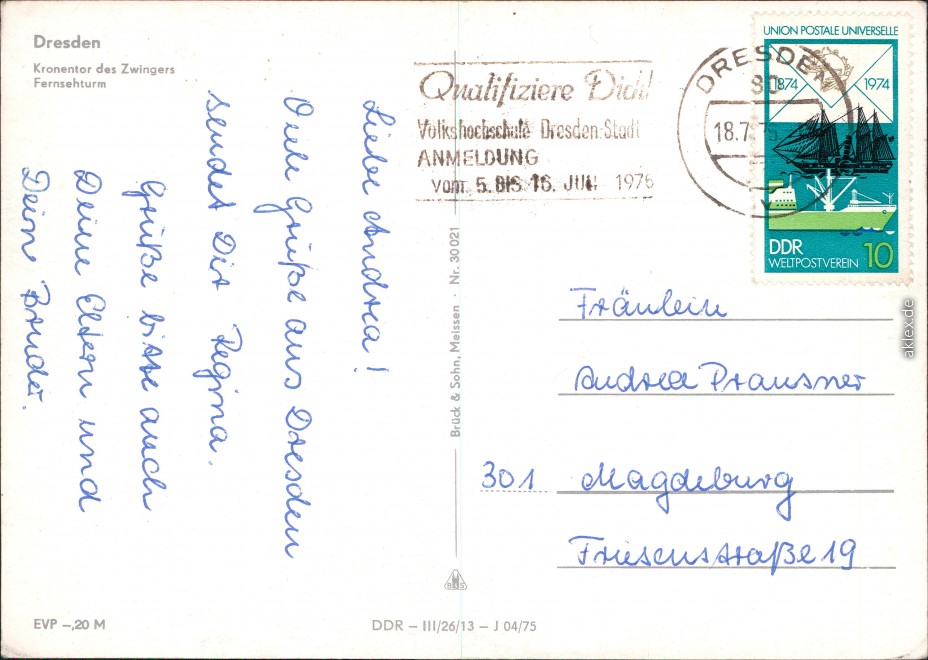 Dresden
Kronentor des Zwingers
Fernsehturm
Liebe Andrea!
Viele Grüße aus Dresden
sendet Dir Regina.
Grüße bitte auch
Deine Eltern und
Dein Bruder.
EVP –,20 M
DDR – III/26/13 – J 04/75
Brück & Sohn, Meissen · Nr. 30021
B&S
Qualifiziere Dich!
Volkshochschule Dresden-Stadt
ANMELDUNG
vom 5. BIS 16. JULI 1975
DRESDEN
80
18.7.75
UNION POSTALE UNIVERSELLE
1874 1974
DDR 10
WELTPOSTVEREIN
Fräulein
Andrea Prausner
301 Magdeburg
Friesenstraße 19
aklex.de